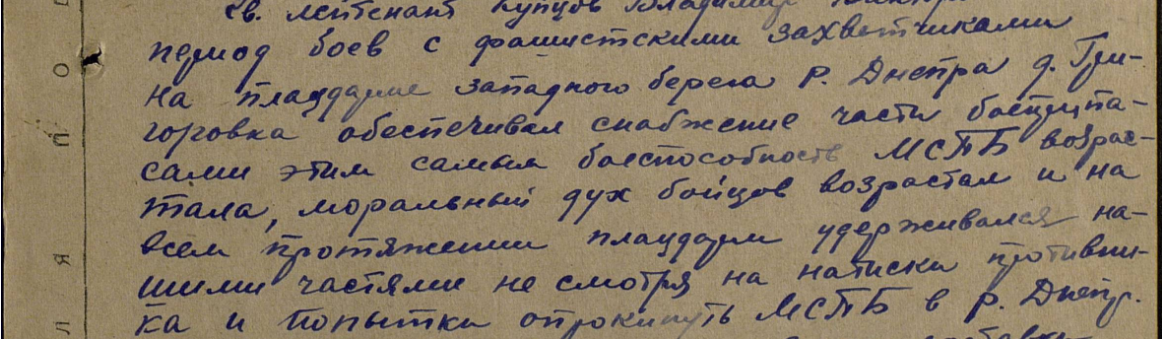 Гв. лейтенант Купцов Владимир
период боев с фашистскими захватчиками
на плацдарме западного берега р. Днепра д. Гри-
горовка обеспечивал снабжение части боеприпа-
сами этим самым боеспособность МСПБ возрас-
тала, моральный дух бойцов возрастал и на
всем протяжении плацдарм удерживался на-
шими частями не смотря на натиски противни-
ка и попытки опрокинуть МСПБ в р. Днепр.
О
П
Я
Л